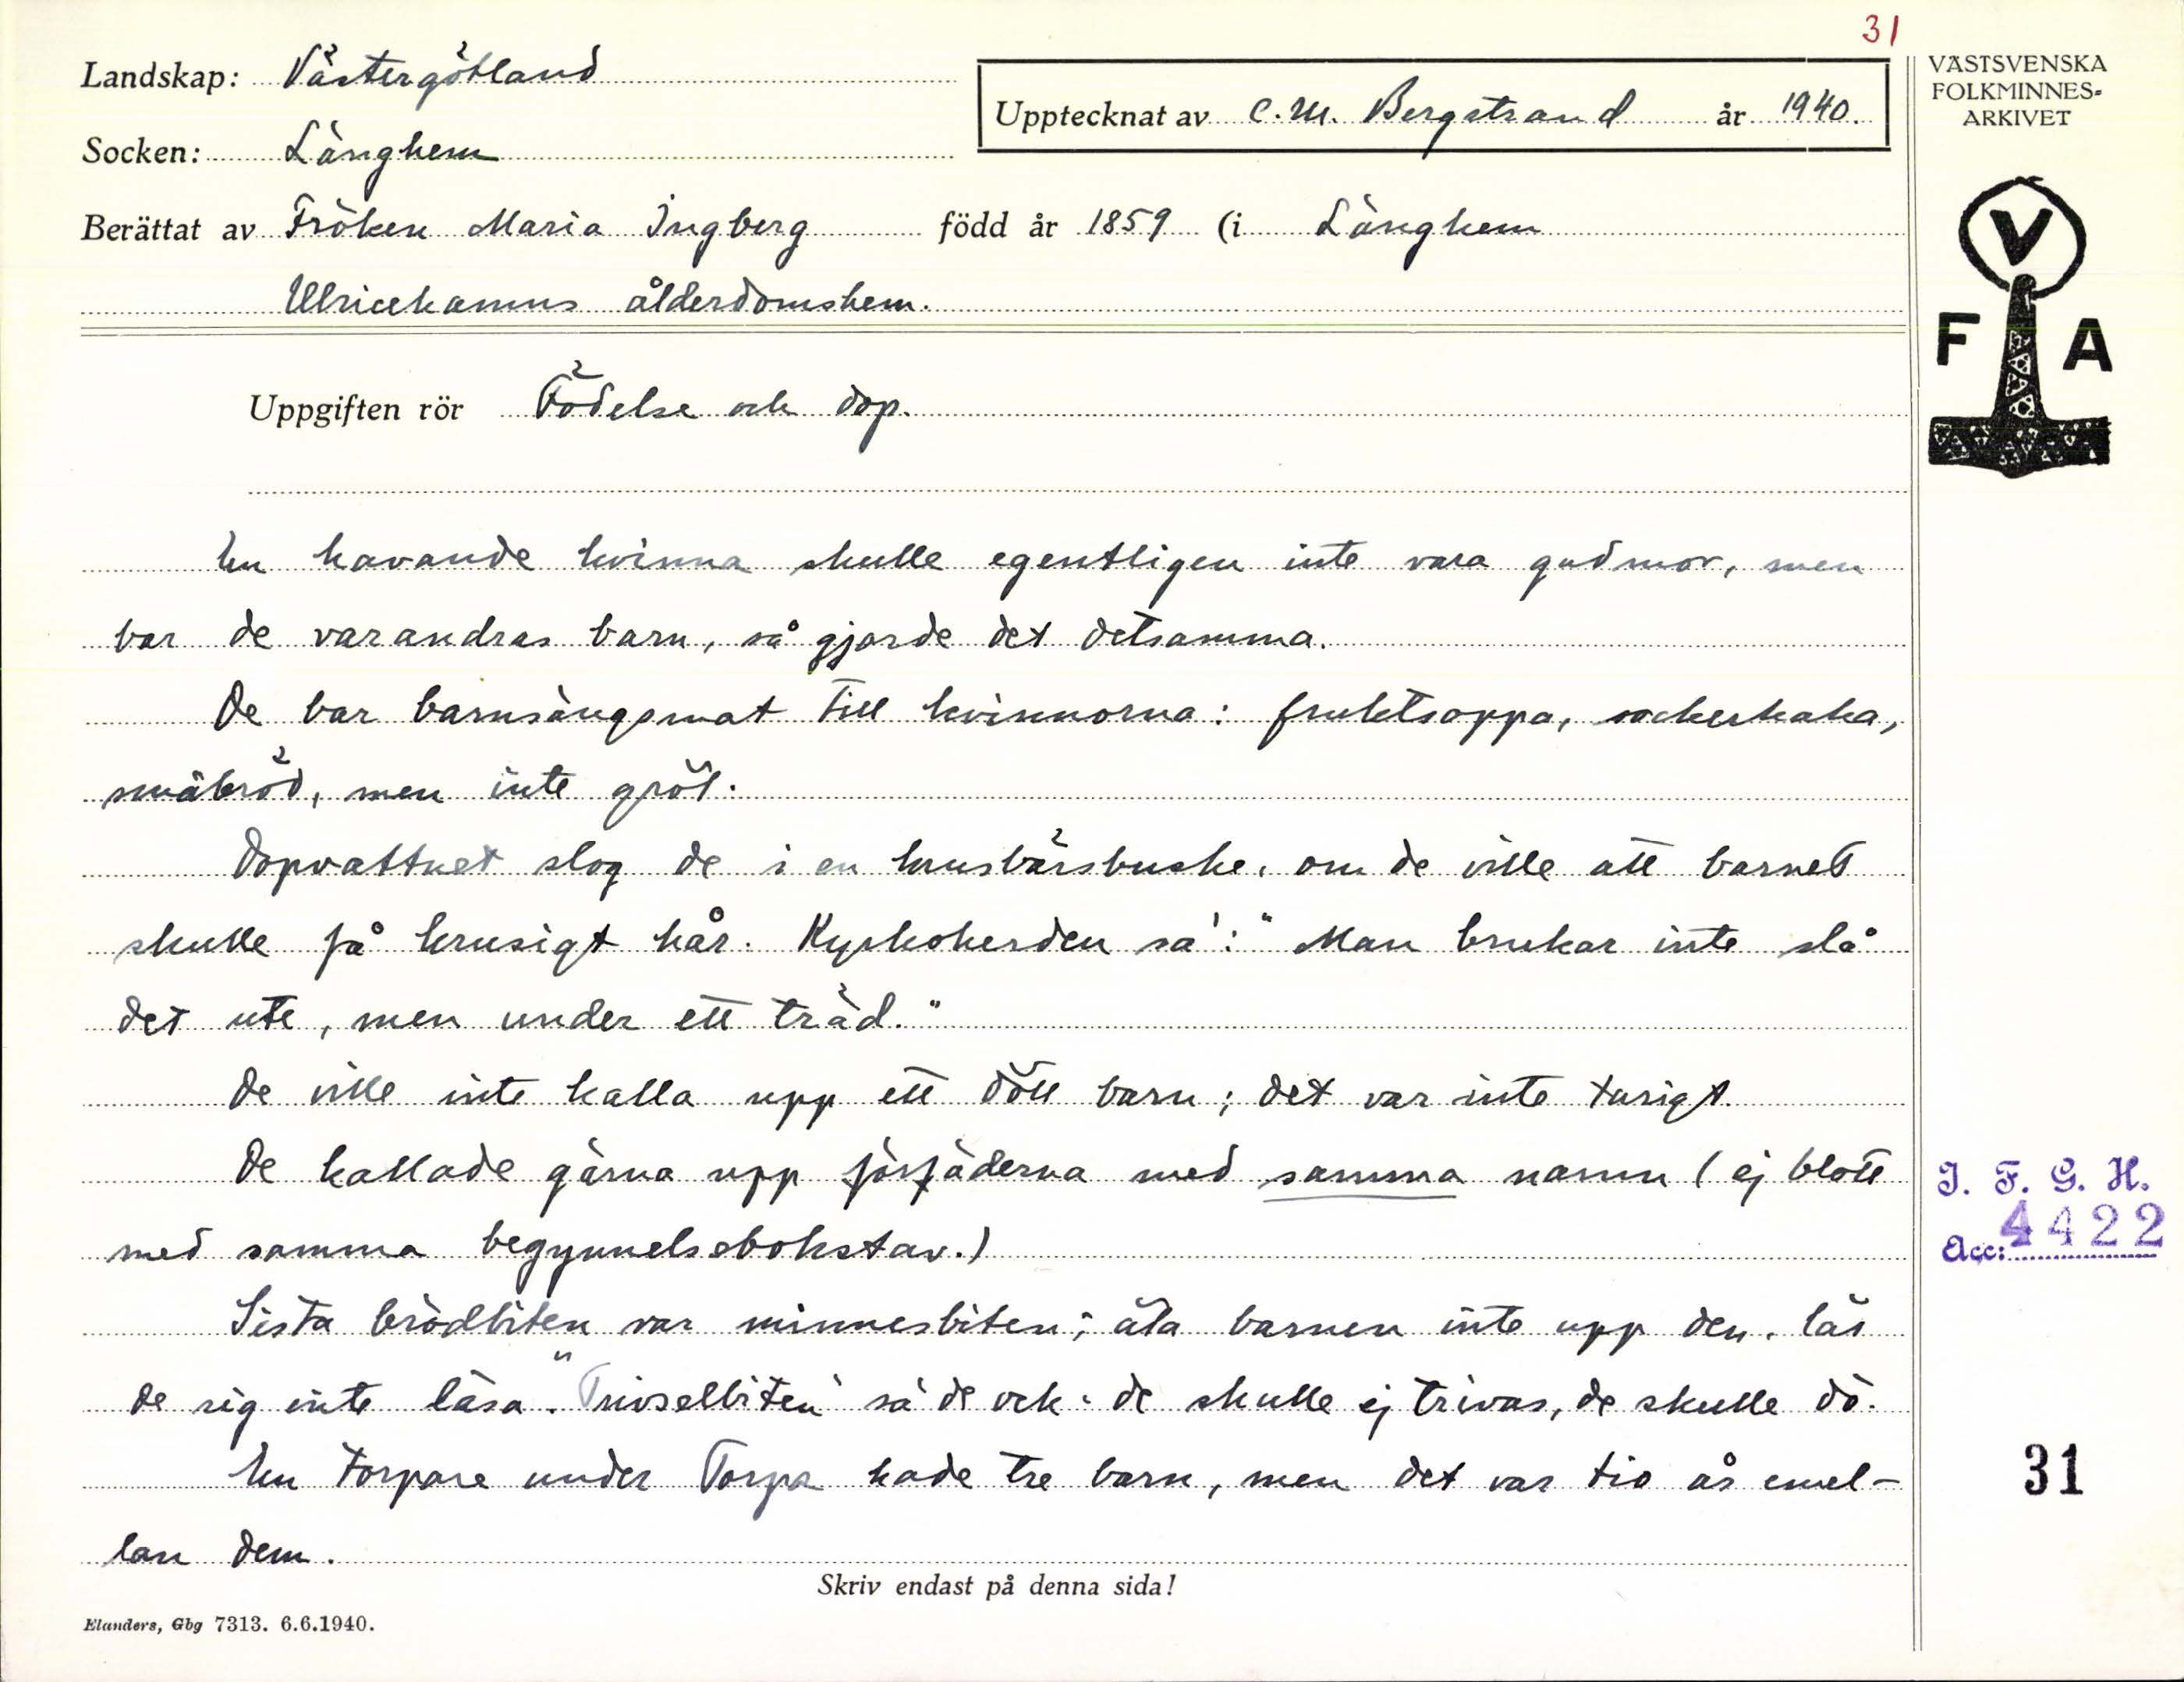 31
Landskap: Västergötland
Upptecknat av C.M. Bergstrand år 1940.
VÄSTSVENSKA
FOLKMINNES-
ARKIVET
Socken: Länghem
Berättat av Fröken Maria Ingberg född år 1859 (i Länghem
Ulricehamns ålderdomshem.
V
F A
Uppgiften rör Födelse och dop.
En havande kvinna skulle egentligen inte vara gudmor, men
bar de varandras barn, så gjorde det detsamma.
De bar barnsängsmat till kvinnorna: fruktsoppa, sockerkaka,
småbröd, men inte gröt.
Dopvattnet slog de i en krusbärsbuske, om de ville att barnet
skulle få krusigt hår. Kyrkoherden sa': "Man brukar inte slå
det ute, men under ett träd."
De ville inte kalla upp ett dött barn; det var inte turigt.
De kallade gärna upp förfäderna med samma namn (ej blott
med samma begynnelsebokstav.)
Sista brödbiten var minnesbiten; äta barnen inte upp den, lär
de sig inte läsa. "Trivselbiten" sa de och: de skulle ej trivas, de skulle dö.
En torpare under Torpa hade tre barn, men det var tio år emel-
lan dem.
I. F. G. H.
Acc: 4422
31
Skriv endast på denna sida!
Elanders, Gbg 7313. 6.6.1940.